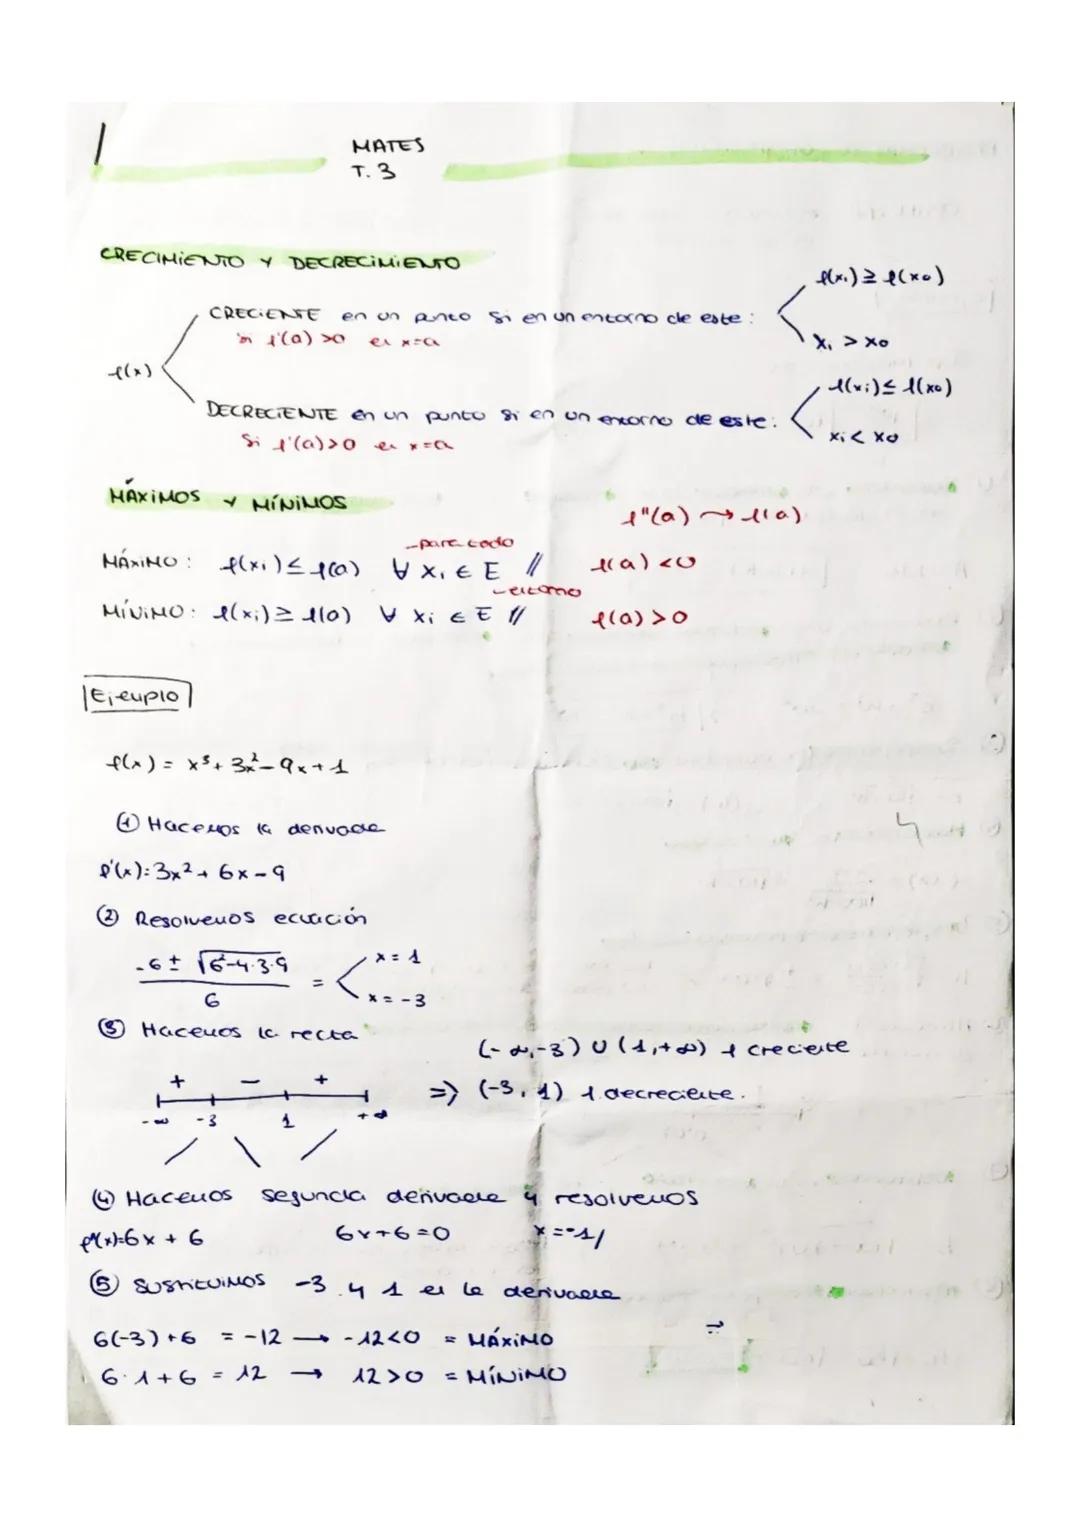 MATES
T. 3
CRECIMIENTO Y DECRECIMIENTO
f(x)
CRECIENTE en un punto si en un entorno de este:
f(x₁) ≥ f(x₀)
x₁ > x₀
si f'(a) >0 en x=a
DECRECIENTE en un punto si en un entorno de este:
f(xi) ≤ f(x₀)
xi < x₀
Si f'(a) >0 en x=a
MÁXIMOS Y MÍNIMOS
f"(a) → f(a)
para todo
MÁXIMO: f(x₁) ≤ f(a) ∀ x₁ ∈ E // f(a) <0
entorno
MÍNIMO: f(xi) ≥ f(a) ∀ xi ∈ E // f(a) >0
Ejemplo
f(x) = x³ + 3x² - 9x + 1
① Hacemos la derivada
f'(x): 3x² + 6x - 9
② Resolvemos ecuación
-6 ± √6²-4·3·9
6
=
x = 1
x = -3
③ Hacemos la recta
(-∞,-3) U (1,+∞) f creciente
+ - +
⇒ (-3, 1) f decreciente.
-∞ -3 1 +∞
④ Hacemos segunda derivada y resolvemos
f"(x)=6x + 6 6x+6=0 x = -1/
⑤ Sustituimos -3 y 1 en la derivada
6(-3)+6 = -12 → -12<0 = MÁXIMO
6·1+6 = 12 → 12>0 = MÍNIMO